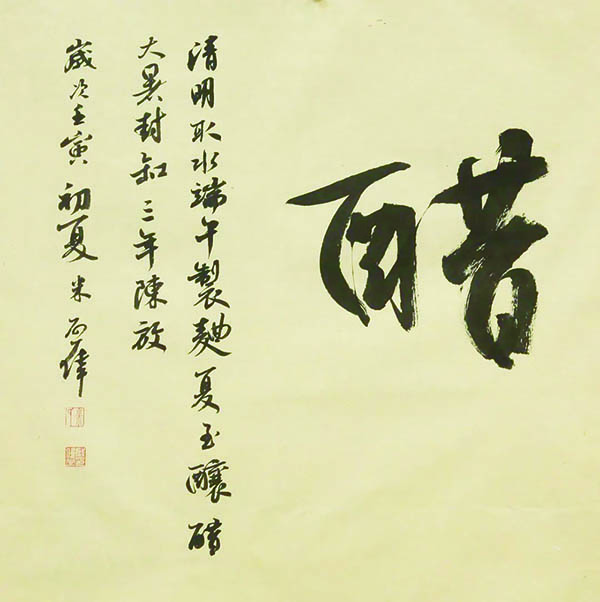 醋
清明取水端午製麯夏至釀醋
大暑封缸三年陳放
歲次壬寅初夏米